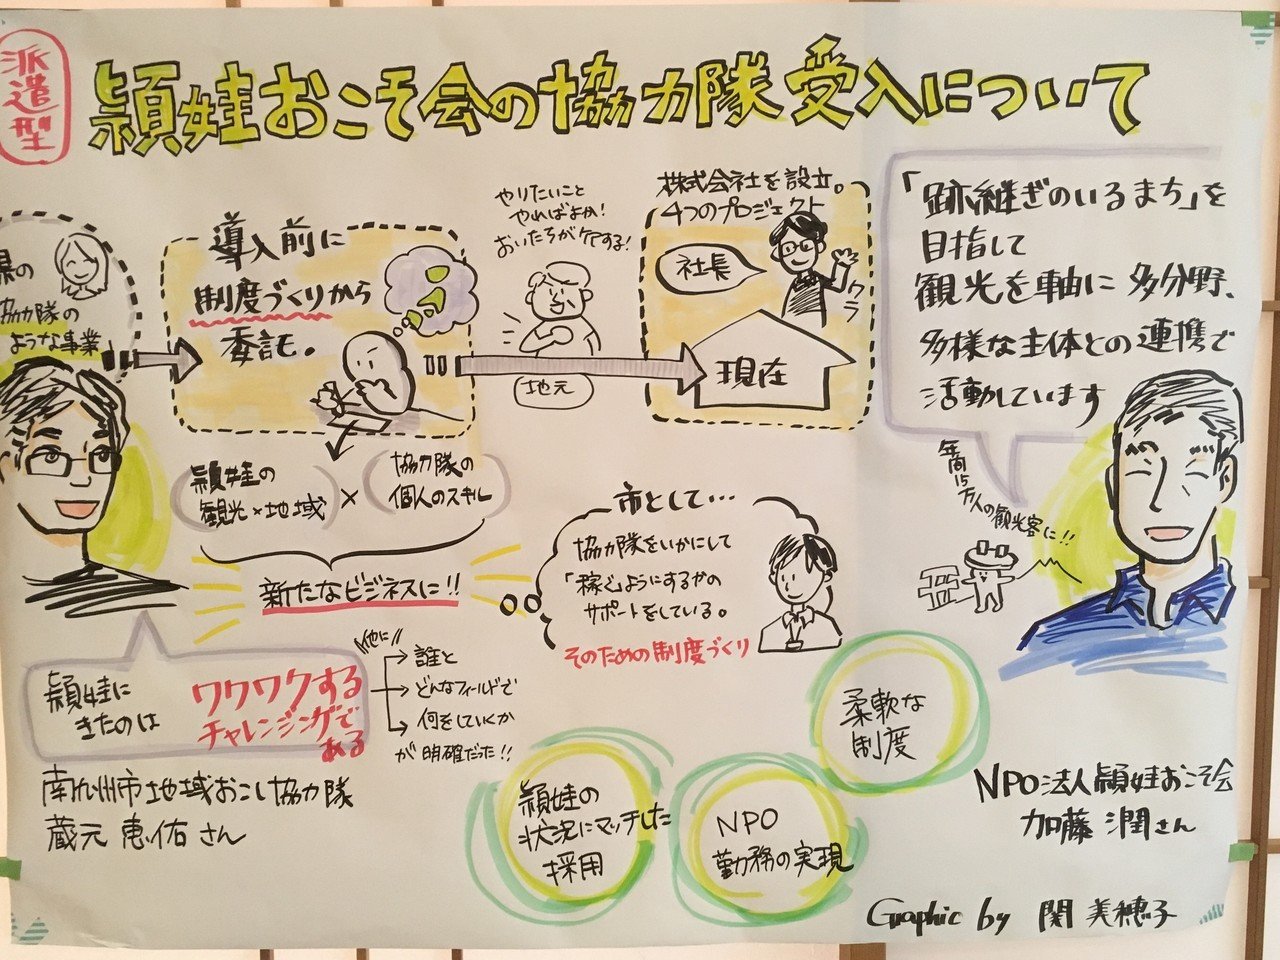 派遣型
頴娃おこそ会の協力隊受入について
県の
協力隊の
ような事業
導入前に
制度づくりから
委託。
やりたいこと
やればよか!
おいたちがケアする!
地元
株式会社を設立。
4つのプロジェクト
社長
クラ
現在
「跡継ぎのいるまち」を
目指して
観光を軸に多分野、
多様な主体との連携で
活動しています
年間15万人の観光客に!!
頴娃の
観光×地域
×
協力隊の
個人のスキル
新たなビジネスに!!
市として…
協力隊をいかにして
「稼ぐ」ようにするかの
サポートをしている。
そのための制度づくり
頴娃に
きたのは
ワクワクする
チャレンジングで
ある
他に
誰と
どんなフィールドで
何をしていくか
が明確だった!!
南九州市地域おこし協力隊
蔵元 恵佑さん
頴娃の
状況にマッチした
採用
NPO
勤務の実現
柔軟な
制度
NPO法人頴娃おこそ会
加藤 潤さん
Graphic by 関 美穂子